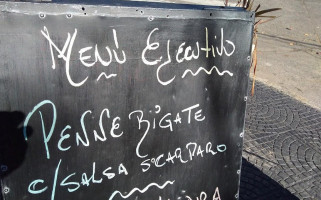 Menú Ejecutivo
PENNE RIGATE
c/ SALSA SCARPARO